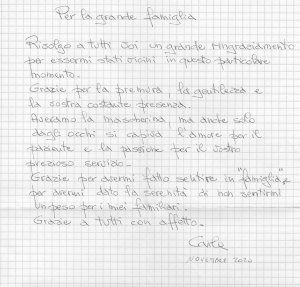 Per la grande famiglia
Rivolgo a tutti voi un grande ringraziamento
per essermi stati vicini in questo particolare
momento.
Grazie per la premura, la gentilezza e
la vostra costante presenza.
Avevamo la mascherina, ma anche solo
dagli occhi si capiva l'amore per il
paziente e la passione per il vostro
prezioso servizio.
Grazie per avermi fatto sentire in "famiglia" e
per avermi dato la serenità di non sentirmi
un peso per i miei familiari.
Grazie a tutti con affetto.
NOVEMBRE 2020